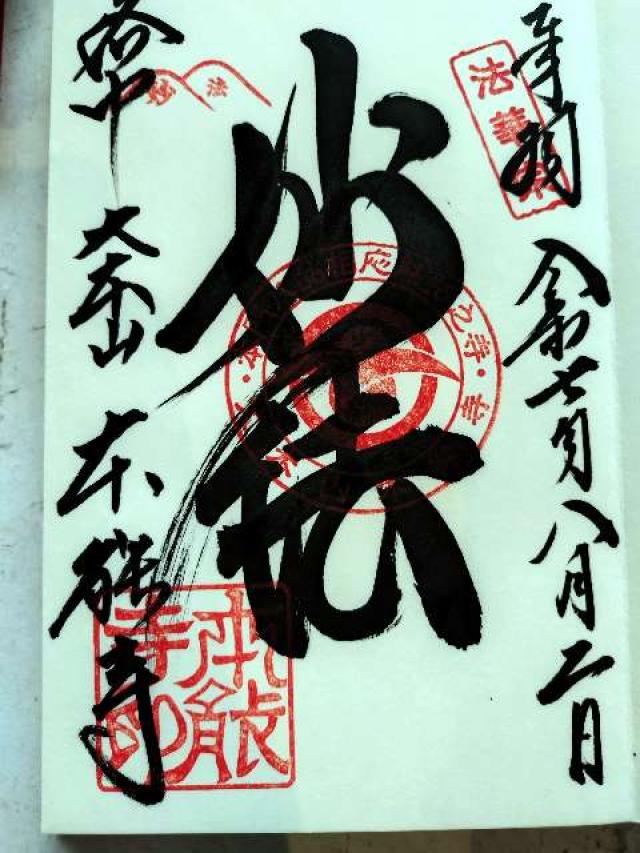 奉拝
法華宗
令和七年八月二日
妙法
妙法
洛中
大本山
本能寺
本能寺印